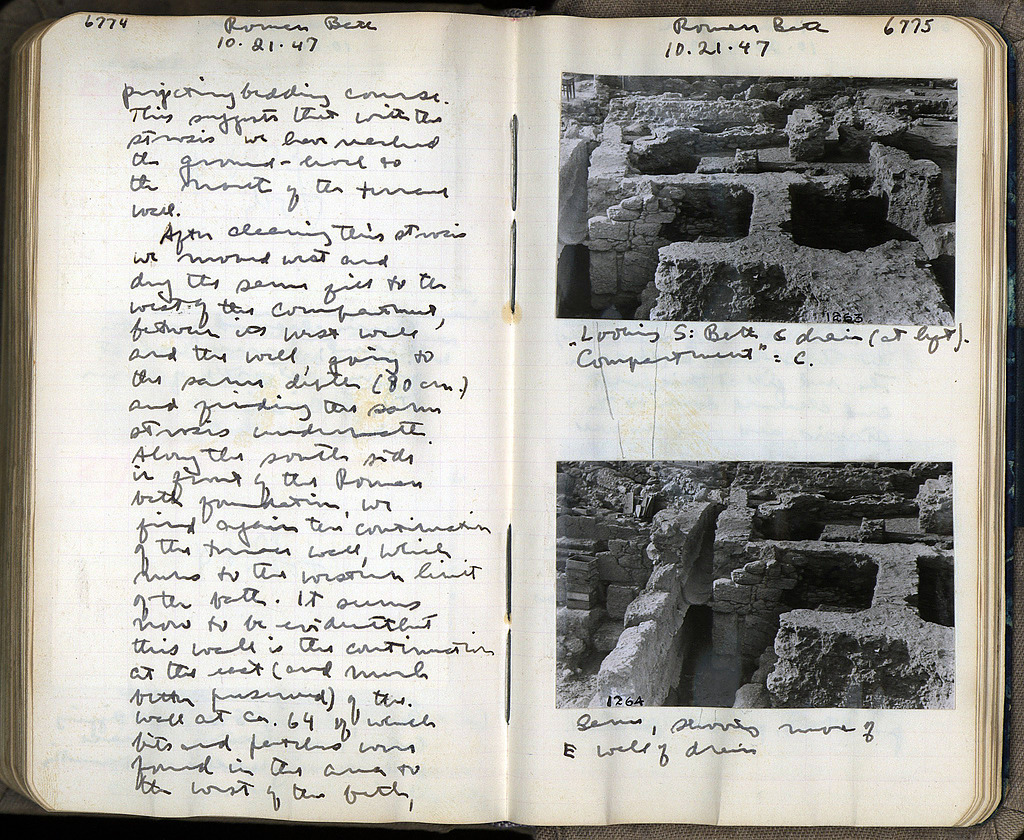 6774 Roman Bath
10.21.47
projecting bedding course.
This suggests that with the
strosis we have reached
the ground-level to
the front of the terrace
wall.
After cleaning this strosis
we moved west and
dug the same fill to the
west of the compartment,
between its west wall
and the wall, going to
the same depth (80 cm.)
and finding the same
strosis underneath.
Along the south side
in front of the Roman
bath foundation, we
find again the continuation
of the terrace wall, which
runs to the western limit
of the bath. It seems
now to be evident that
this wall is the continuation
at the east (and much
better preserved) of the
wall at ca. 64 of which
bits and patches were
found in the area to
the west of the bath,
Roman Bath 6775
10.21.47
1263
Looking S: Bath & drain (at left).
"Compartment" = C.
1264
Same, showing more of
E wall of drain